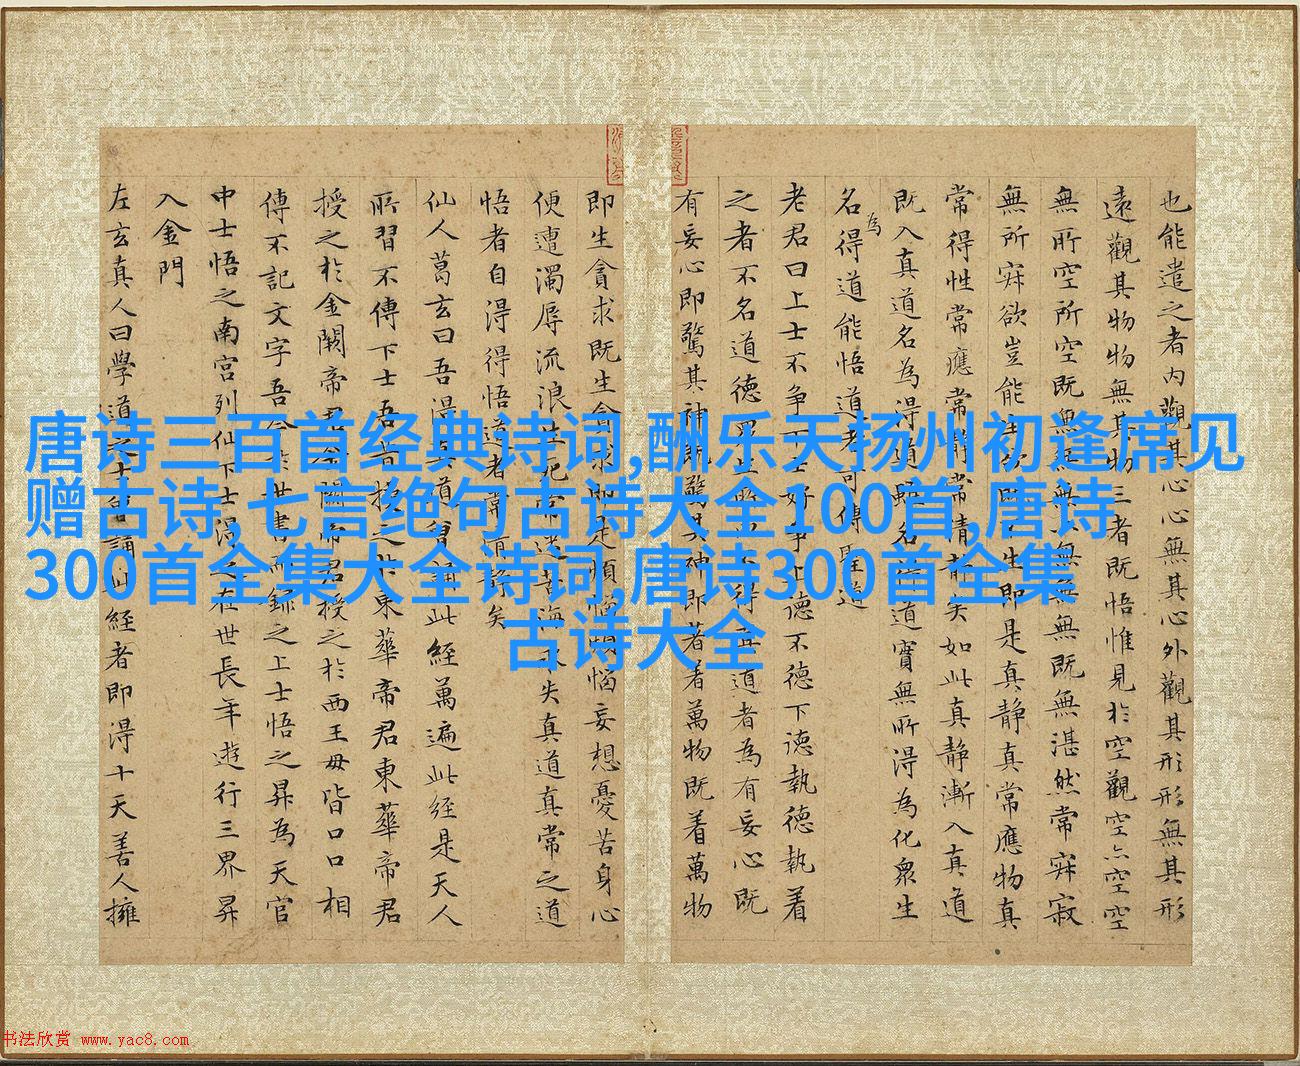 唐诗三百首经典诗词,酬乐天扬州初逢席上见
赠古诗,七言绝句古诗大全100首,唐诗
300首全集大全诗词,唐诗300首全集
古诗大全
也能遣之者內觀其心心無其心外觀其形形無其形
遠觀其物物無其物三者既悟惟見於空觀空亦空空
無所空所空既無無無亦無無無既無湛然常寂寂
無所寂欲豈能生欲既不生即是真靜真常應物真
常得性常應常靜常清靜矣如此真靜漸入真道
既入真道名為得道雖名得道實無所得為化眾生
名為得道能悟道者可傳聖道
老君曰上士不爭下士好爭上德不德下德執德執着
之者不名道德眾生所以不得真道者為有妄心既
有妄心即驚其神既驚其神即着萬物既着萬物
即生貪求既生貪求即是煩惱煩惱妄想憂苦身心
便遭濁辱流浪生死常沉苦海永失真道真常之道
悟者自得得悟道者常清靜矣
仙人葛玄曰吾得真道曾誦此經萬遍此經是天人
所習不傳下士吾昔授之於東華帝君東華帝君
授之於金闕帝君金闕帝君授之於西王母皆口口相
傳不記文字吾今於世書而錄之上士悟之昇為天官
中士悟之南宮列仙下士得之在世長年遊行三界昇
入金門
左玄真人曰學道之士持誦此經者即得十天善人擁
书法欣赏 www.yac8.com